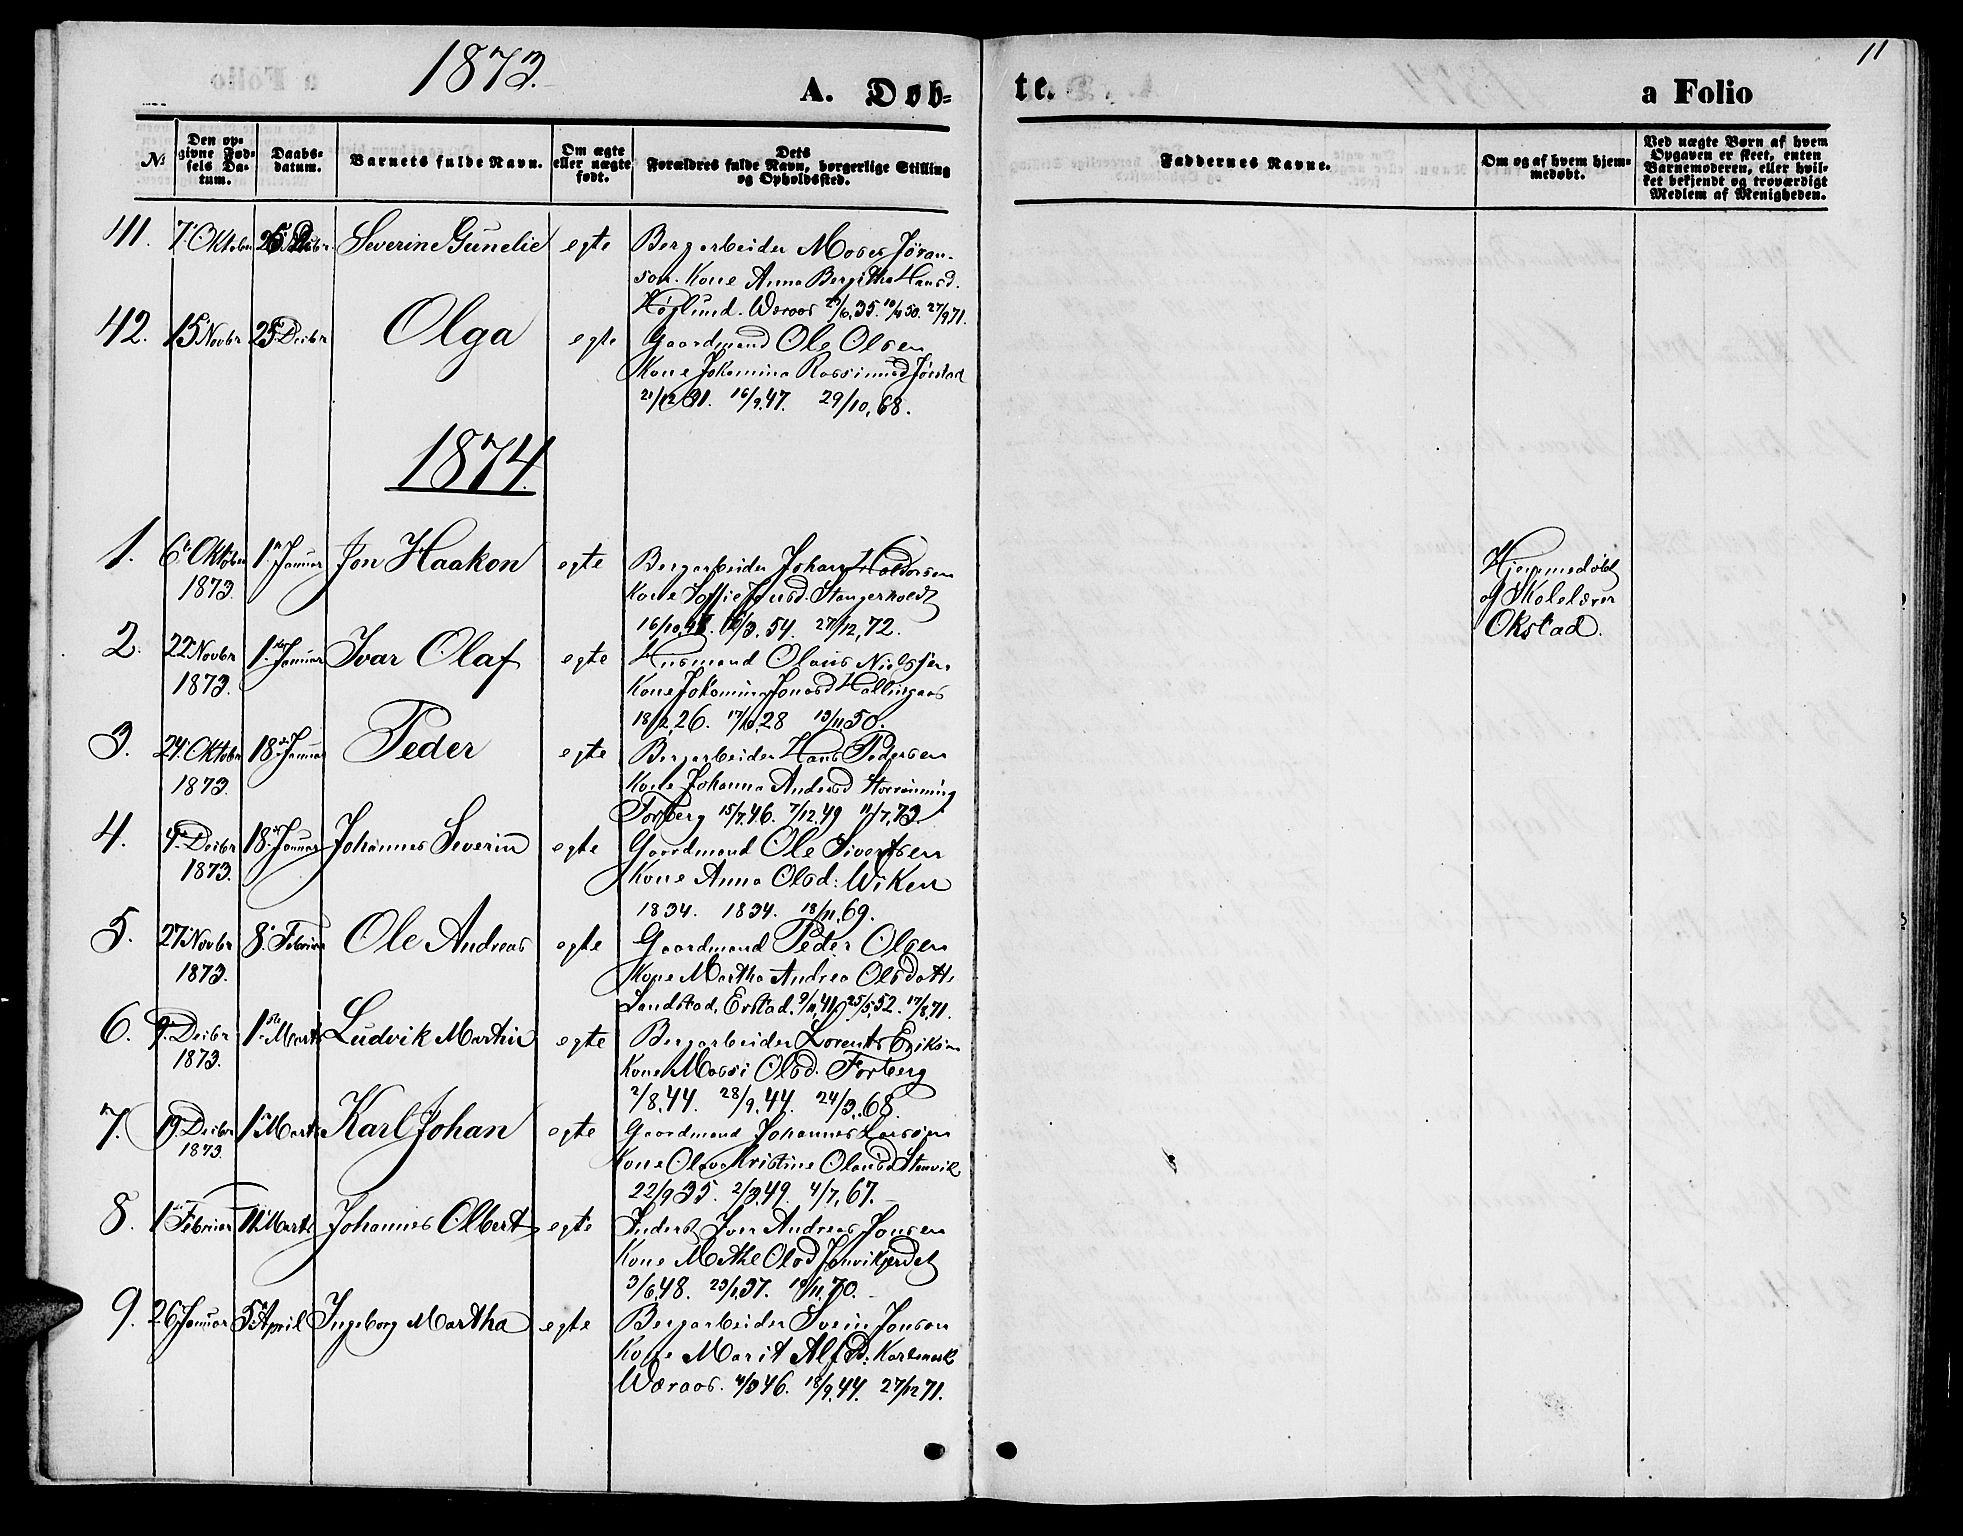 1873.
A. Døb-
te.
a Folio
11
№
Den op-
givne Fød-
sels Da-
tum.
Daabs-
datum.
Barnets fulde Navn.
Om ægte
eller uægte
født.
Dets
Forældres fulde Navn, borgerlige Stilling
og Opholdssted.
Faddernes Navne.
Om og af hvem hjem-
medøbt.
Ved uægte Børn af hvem
Opgaven er skeet, enten
Barnemoderen, eller hvil-
ket bekjendt og troværdigt
Medlem af Menigheden.
41. 7. Oktober Severine Gunelie egte Bergarbeider Moses Jøran-
son. Kone Anna Bergitha Hansd.
Høglund. Woraas 27/9 71.
42. 15 Novbr 25 Decbr Olga egte Gaardmand Ole Olsen
Kone Johamina Rasmusd Jørstad
21/12 31. 16/9.47. 29/10,68.
1874.
1. 6. Oktober 1. Januar Jon Haakon egte Bergarbeider Johan Haldorsen
1873. Kone Soffie Jensd. Stangerholdt
16/10, /3,54. 27/12,72.
Hjemmedøbt
af Skolelærer
Okstad.
2. 22 Novbr 1. Januar Ivar Olaf egte Husmand Olaus Nielssen
1873. Kone Johamina Jonasd Hallingaas
18/12,26. 17/10,28 13/11 50.
3. 24. Oktober 18. Januar Peder egte Bergarbeider Hans Pedersen
1873. Kone Johanna Andersd Storrønning
Forberg 15/7,46. 7/12.49 11/7,73.
4. 4. Decbr 18. Januar Johannes Severin egte Gaardmand Ole Sivertsen
1873. Kone Anna Olsd: Wiken
1834. 1834. 18/11,69.
5. 27 Novbr 8. Februar Ole Andreas egte Gaardmand Peder Olsen
1873. Kone Martha Andrea Olsdatte
Landstad, Erstad. 9/11,41, 25/5,52. 17/8,71.
6. 9. Decbr 1ste Marts Ludvik Martin egte Bergarbeider Lorents Eriksen
1873. Kone Massi Olsd. Forberg
2/8,44. 28/9,44. 24/3,68.
7. 19. Decbr 1. Marts Karl Johan egte Gaardmand Johannes Larsen
1873. Kone Olava Kristine Olausd Stenvik
22/9 35. 2/3,49. 4/7,67.
8. 1. Februar Marts Johannes Olbert egte Inderst Iver Andreas Jonsen
Kone Mathe Olsd
3/6,48. 23/1,37. 19/11,70.
9. 26 Januar 5. April Ingeborg Martha egte Bergarbeider Svein Jonsen
Kone Marit Alfsd:
Wæraas. 4/3 46. 18/9,44. 27/12 71.